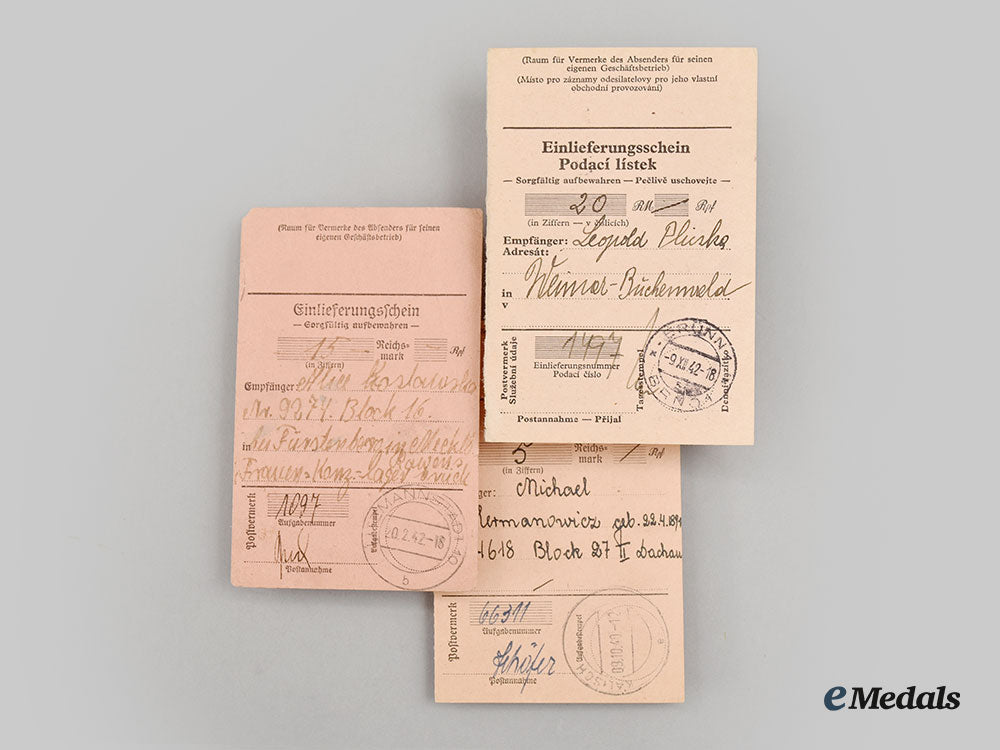 (Raum für Vermerke des Absenders für seinen
eigenen Geschäftsbetrieb)
(Místo pro záznamy odesílatelovy pro jeho vlastní
obchodní provozování)
Einlieferungsschein
Podací lístek
— Sorgfältig aufbewahren — Pečlivě uschovejte —
20 RM — Rpf
(in Ziffern — v číslicích)
Empfänger: Leopold
Adresát:
in Weimar-Buchenwald
v
Postvermerk
Služební údaje
1497
Einlieferungsnummer
Podací číslo
Tagesstempel
Denní razítko
BRÜNN 1
-9.XII.42-18
BRNO 1
Postannahme — Přijal
(Raum für Vermerke des Absenders für seinen
eigenen Geschäftsbetrieb)
Einlieferungsschein
— Sorgfältig aufbewahren —
15 — Reichs-
mark Rpf
(in Ziffern)
Empfänger
Nr. 9277. Block 16.
in bei Fürstenberg in Meckl.
Frauen-Konz-Lager
Postvermerk
1097
Aufgabenummer
Aufgabestempel
Postannahme
20.2.42-18
b
5 Reichs-
mark / Rpf
(in Ziffern)
ger: Michael
Hermanowicz geb. 22.4.189
4618 Block 27 II Dachau
Postvermerk
66311
Aufgabenummer
Aufgabestempel
Schäfer
Postannahme
KALISCH
09.10.40-12
e
eMedals